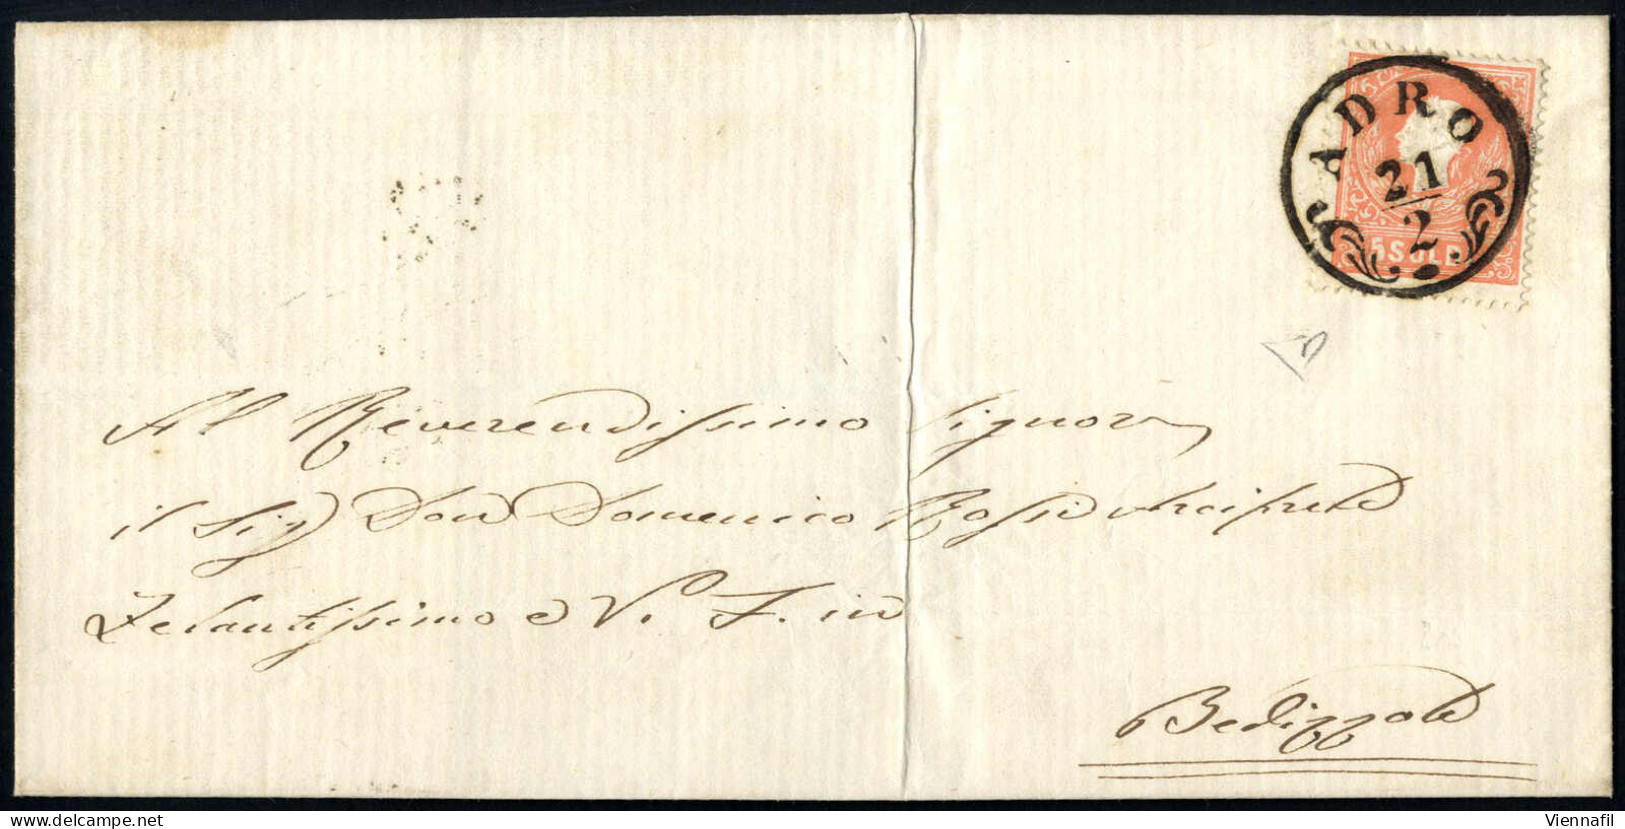 ADRO
21
2
5 SOLD
Al Reverendissimo Signor
il Sig Don Domenico Rossi Arciprete
Zelantissimo e V. F. in
Bedizzole
delcampe.net
Viennafil